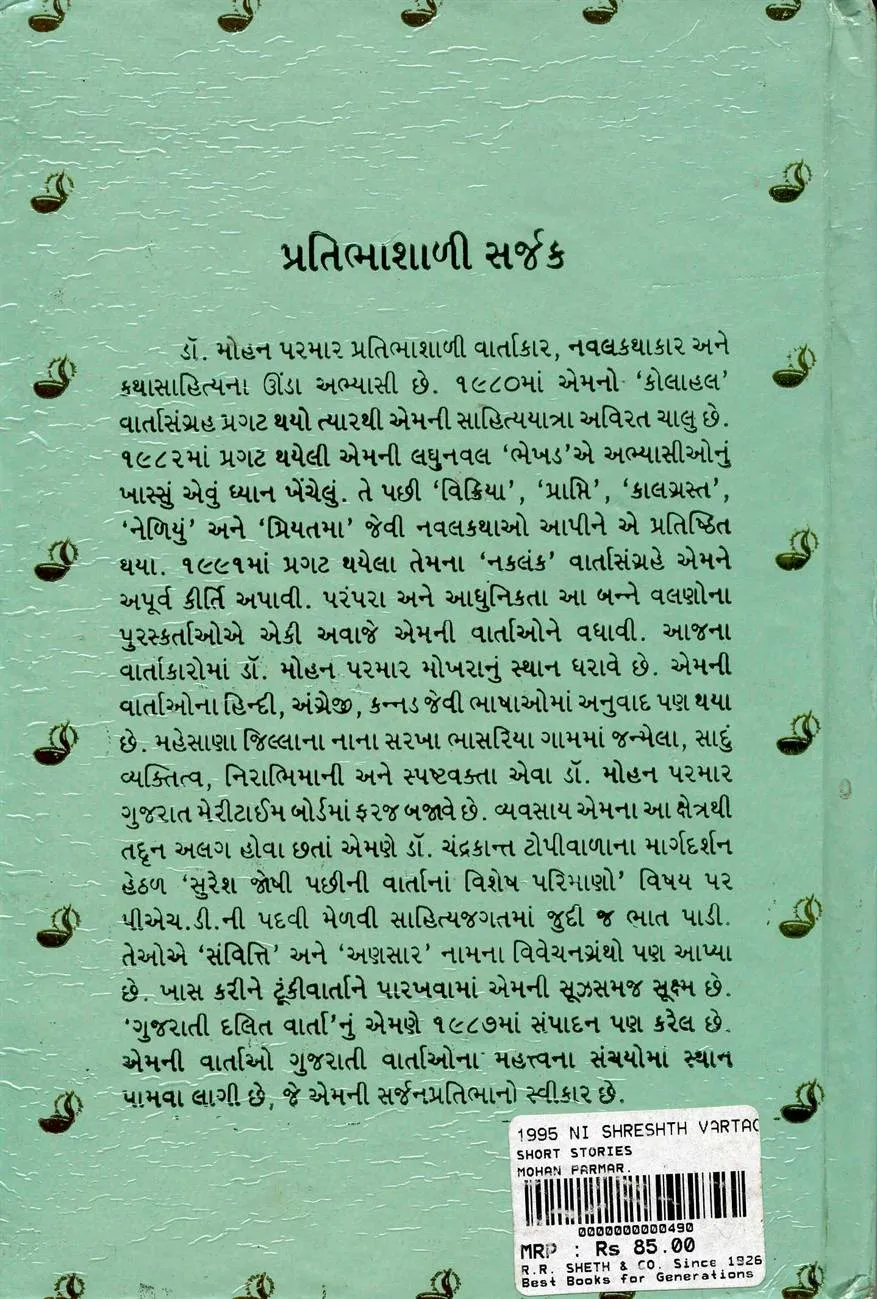 પ્રતિભાશાળી સર્જક
ડૉ. મોહન પરમાર પ્રતિભાશાળી વાર્તાકાર, નવલકથાકાર અને
કથાસાહિત્યના ઊંડા અભ્યાસી છે. ૧૯૮૦માં એમનો ‘કોલાહલ’
વાર્તાસંગ્રહ પ્રગટ થયો ત્યારથી એમની સાહિત્યયાત્રા અવિરત ચાલુ છે.
૧૯૮૨માં પ્રગટ થયેલી એમની લઘુનવલ ‘ભેખડ’એ અભ્યાસીઓનું
ખાસ્સું એવું ધ્યાન ખેંચેલું. તે પછી ‘વિક્રિયા’, ‘પ્રાપ્તિ’, ‘કાલગ્રસ્ત’,
‘નેળિયું’ અને ‘પ્રિયતમા’ જેવી નવલકથાઓ આપીને એ પ્રતિષ્ઠિત
થયા. ૧૯૯૧માં પ્રગટ થયેલા તેમના ‘નકલંક’ વાર્તાસંગ્રહે એમને
અપૂર્વ કીર્તિ અપાવી. પરંપરા અને આધુનિકતા આ બન્ને વલણોના
પુરસ્કર્તાઓએ એકી અવાજે એમની વાર્તાઓને વધાવી. આજના
વાર્તાકારોમાં ડૉ. મોહન પરમાર મોખરાનું સ્થાન ધરાવે છે. એમની
વાર્તાઓના હિન્દી, અંગ્રેજી, કન્નડ જેવી ભાષાઓમાં અનુવાદ પણ થયા
છે. મહેસાણા જિલ્લાના નાના સરખા ભાસરિયા ગામમાં જન્મેલા, સાદું
વ્યક્તિત્વ, નિરાભિમાની અને સ્પષ્ટવક્તા એવા ડૉ. મોહન પરમાર
ગુજરાત મેરીટાઈમ બોર્ડમાં ફરજ બજાવે છે. વ્યવસાય એમના આ ક્ષેત્રથી
તદ્દન અલગ હોવા છતાં એમણે ડૉ. ચંદ્રકાન્ત ટોપીવાળાના માર્ગદર્શન
હેઠળ ‘સુરેશ જોષી પછીની વાર્તાનાં વિશેષ પરિમાણો’ વિષય પર
પીએચ.ડી.ની પદવી મેળવી સાહિત્યજગતમાં જુદી જ ભાત પાડી.
તેઓએ ‘સંવિત્તિ’ અને ‘અણસાર’ નામના વિવેચનગ્રંથો પણ આપ્યા
છે. ખાસ કરીને ટૂંકીવાર્તાને પારખવામાં એમની સૂઝસમજ સૂક્ષ્મ છે.
‘ગુજરાતી દલિત વાર્તા’નું એમણે ૧૯૮૭માં સંપાદન પણ કરેલ છે.
એમની વાર્તાઓ ગુજરાતી વાર્તાઓના મહત્ત્વના સંચયોમાં સ્થાન
પામવા લાગી છે, જે એમની સર્જનપ્રતિભાનો સ્વીકાર છે.
1995 NI SHRESHTH VARTAO
SHORT STORIES
MOHAN PARMAR.
0000000000490
MRP : Rs 85.00
R.R. SHETH & CO. Since 1926
Best Books for Generations